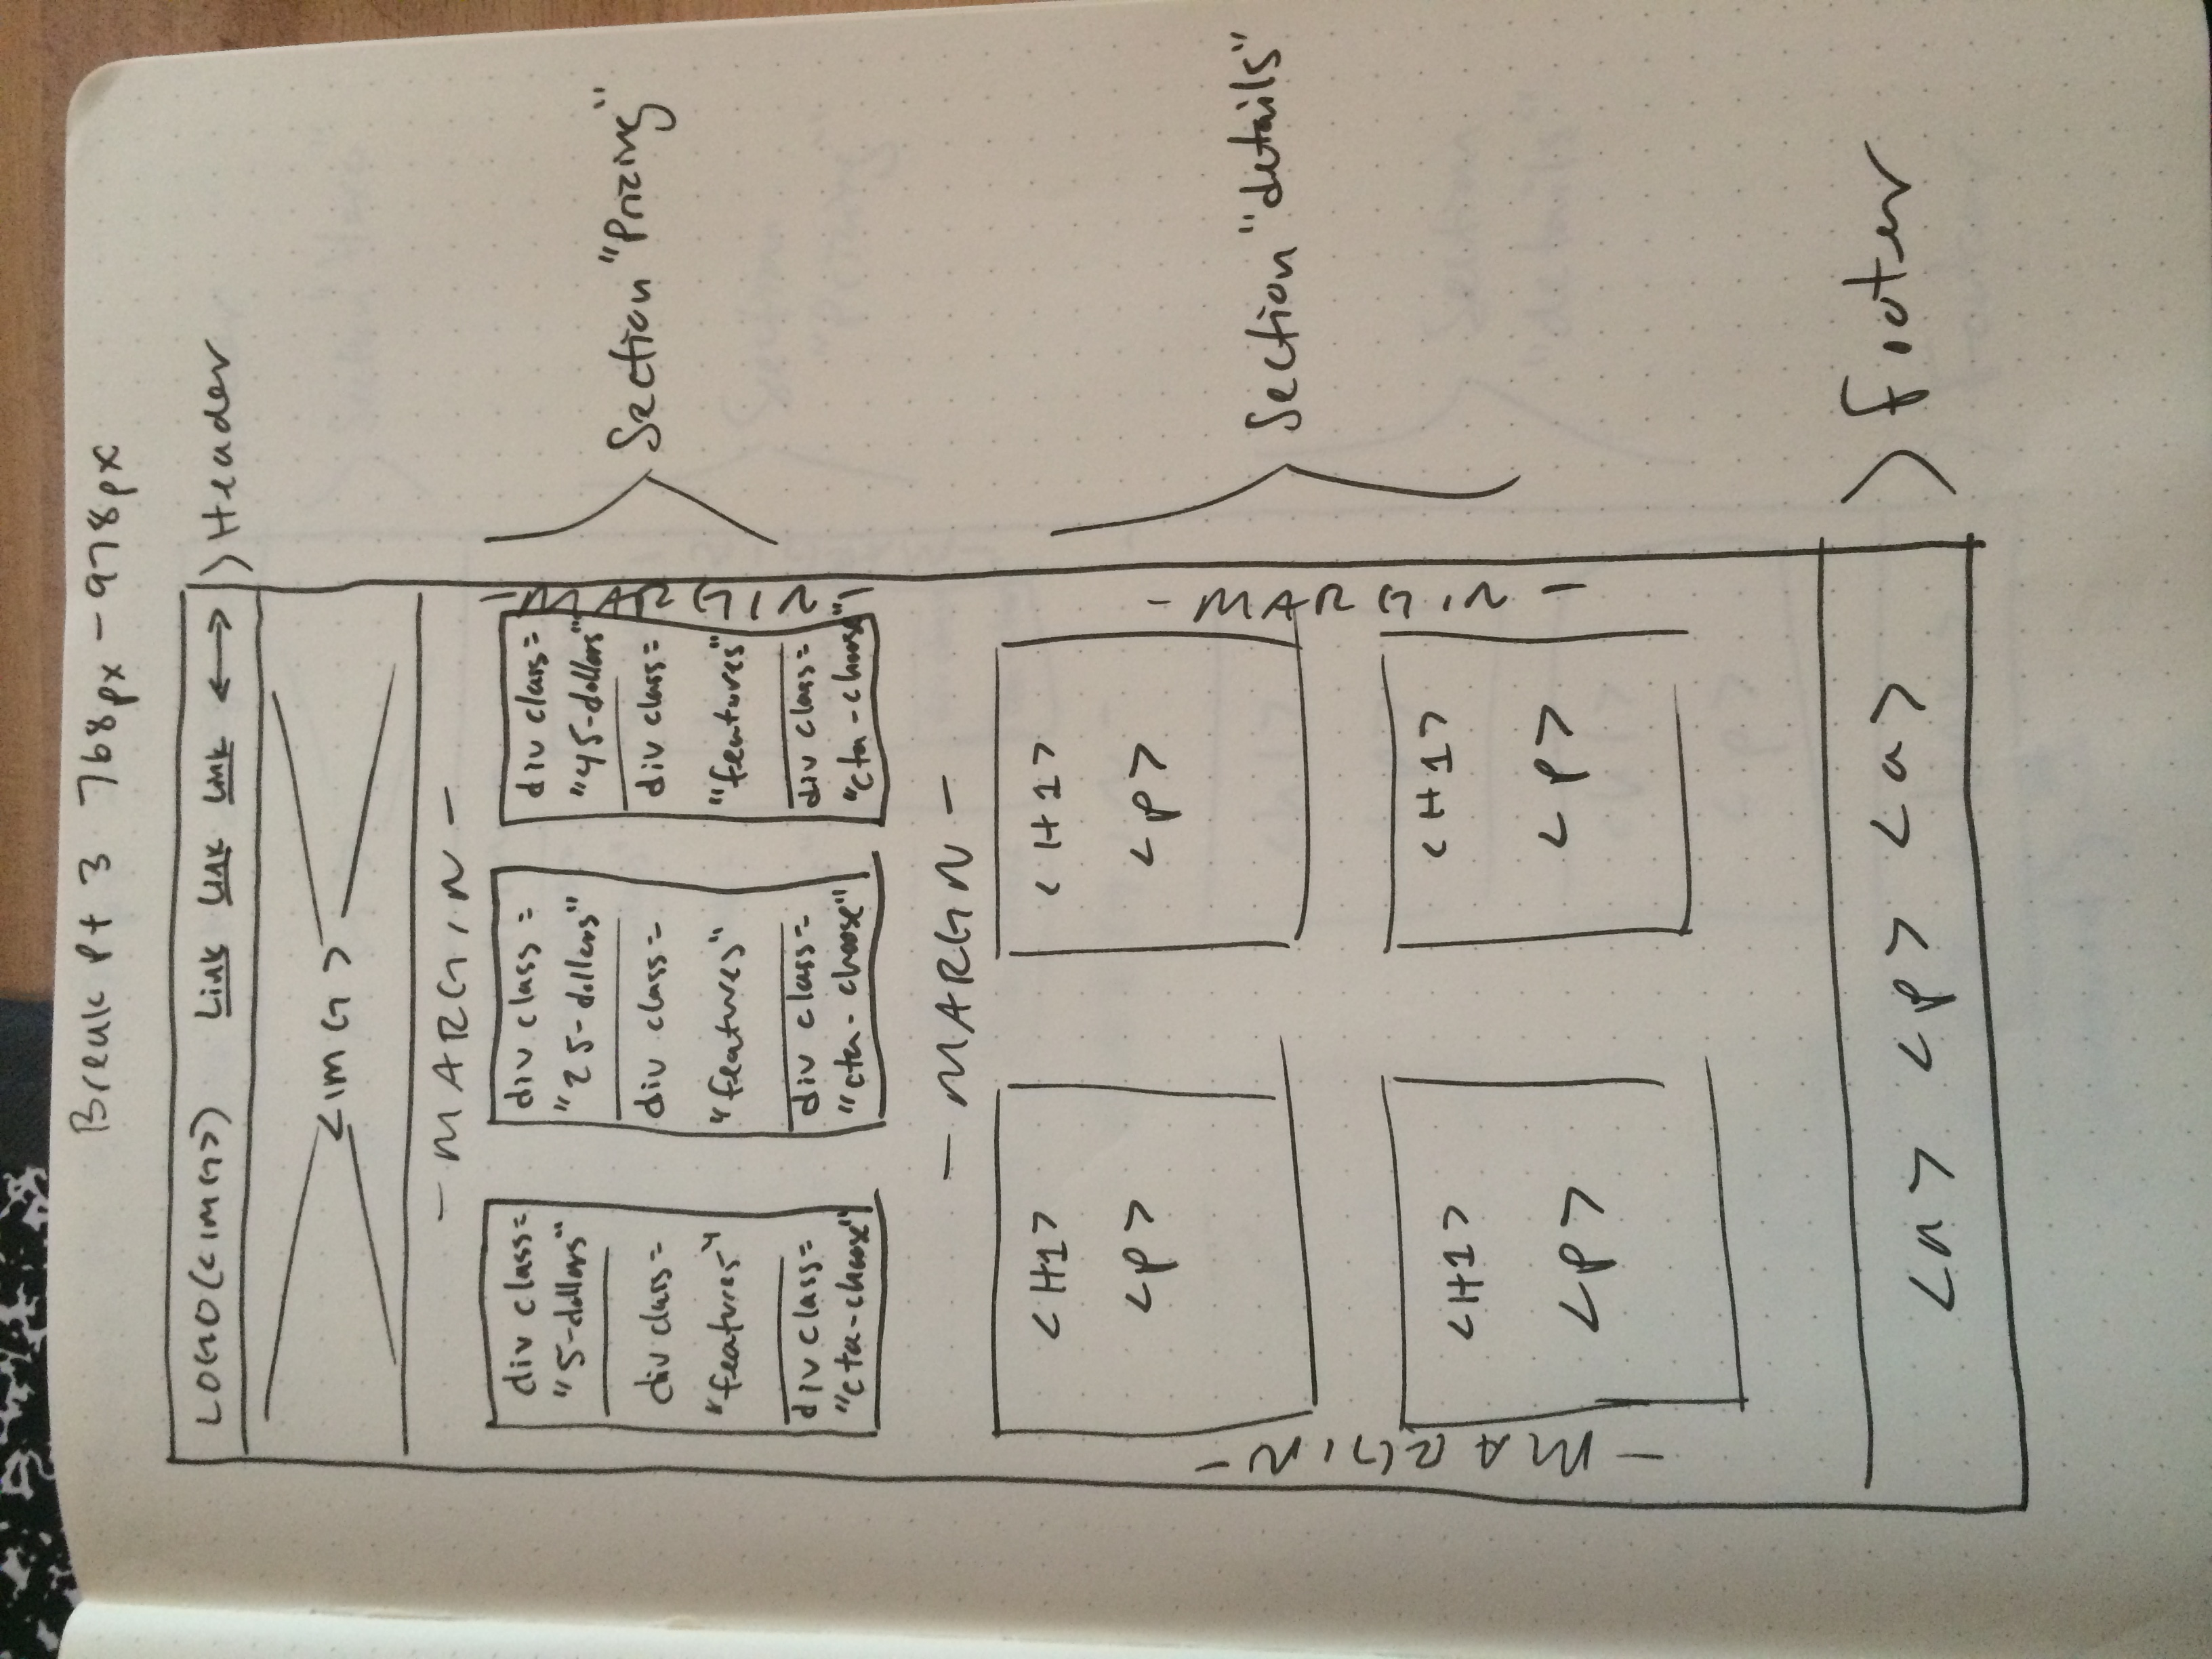 Break Pt 3 768px - 978px
LOGO(<IMG>) Link Link Link
Header
<IMG>
- MARGIN -
div class=
"5-dollars"
div class=
"features"
div class=
"cta-choose"
div class =
"25-dollars"
div class=
"features"
div class=
"cta-choose"
div class=
"45-dollars"
div class=
"features"
div class=
"cta-choose"
- MARGIN -
Section "Pricing"
- MARGN -
<H1>
<p>
<H1>
<p>
- MARGIN -
- MARGIN -
Section "details"
<H1>
<p>
<H1>
<p>
<a> <p> <a>
Footer